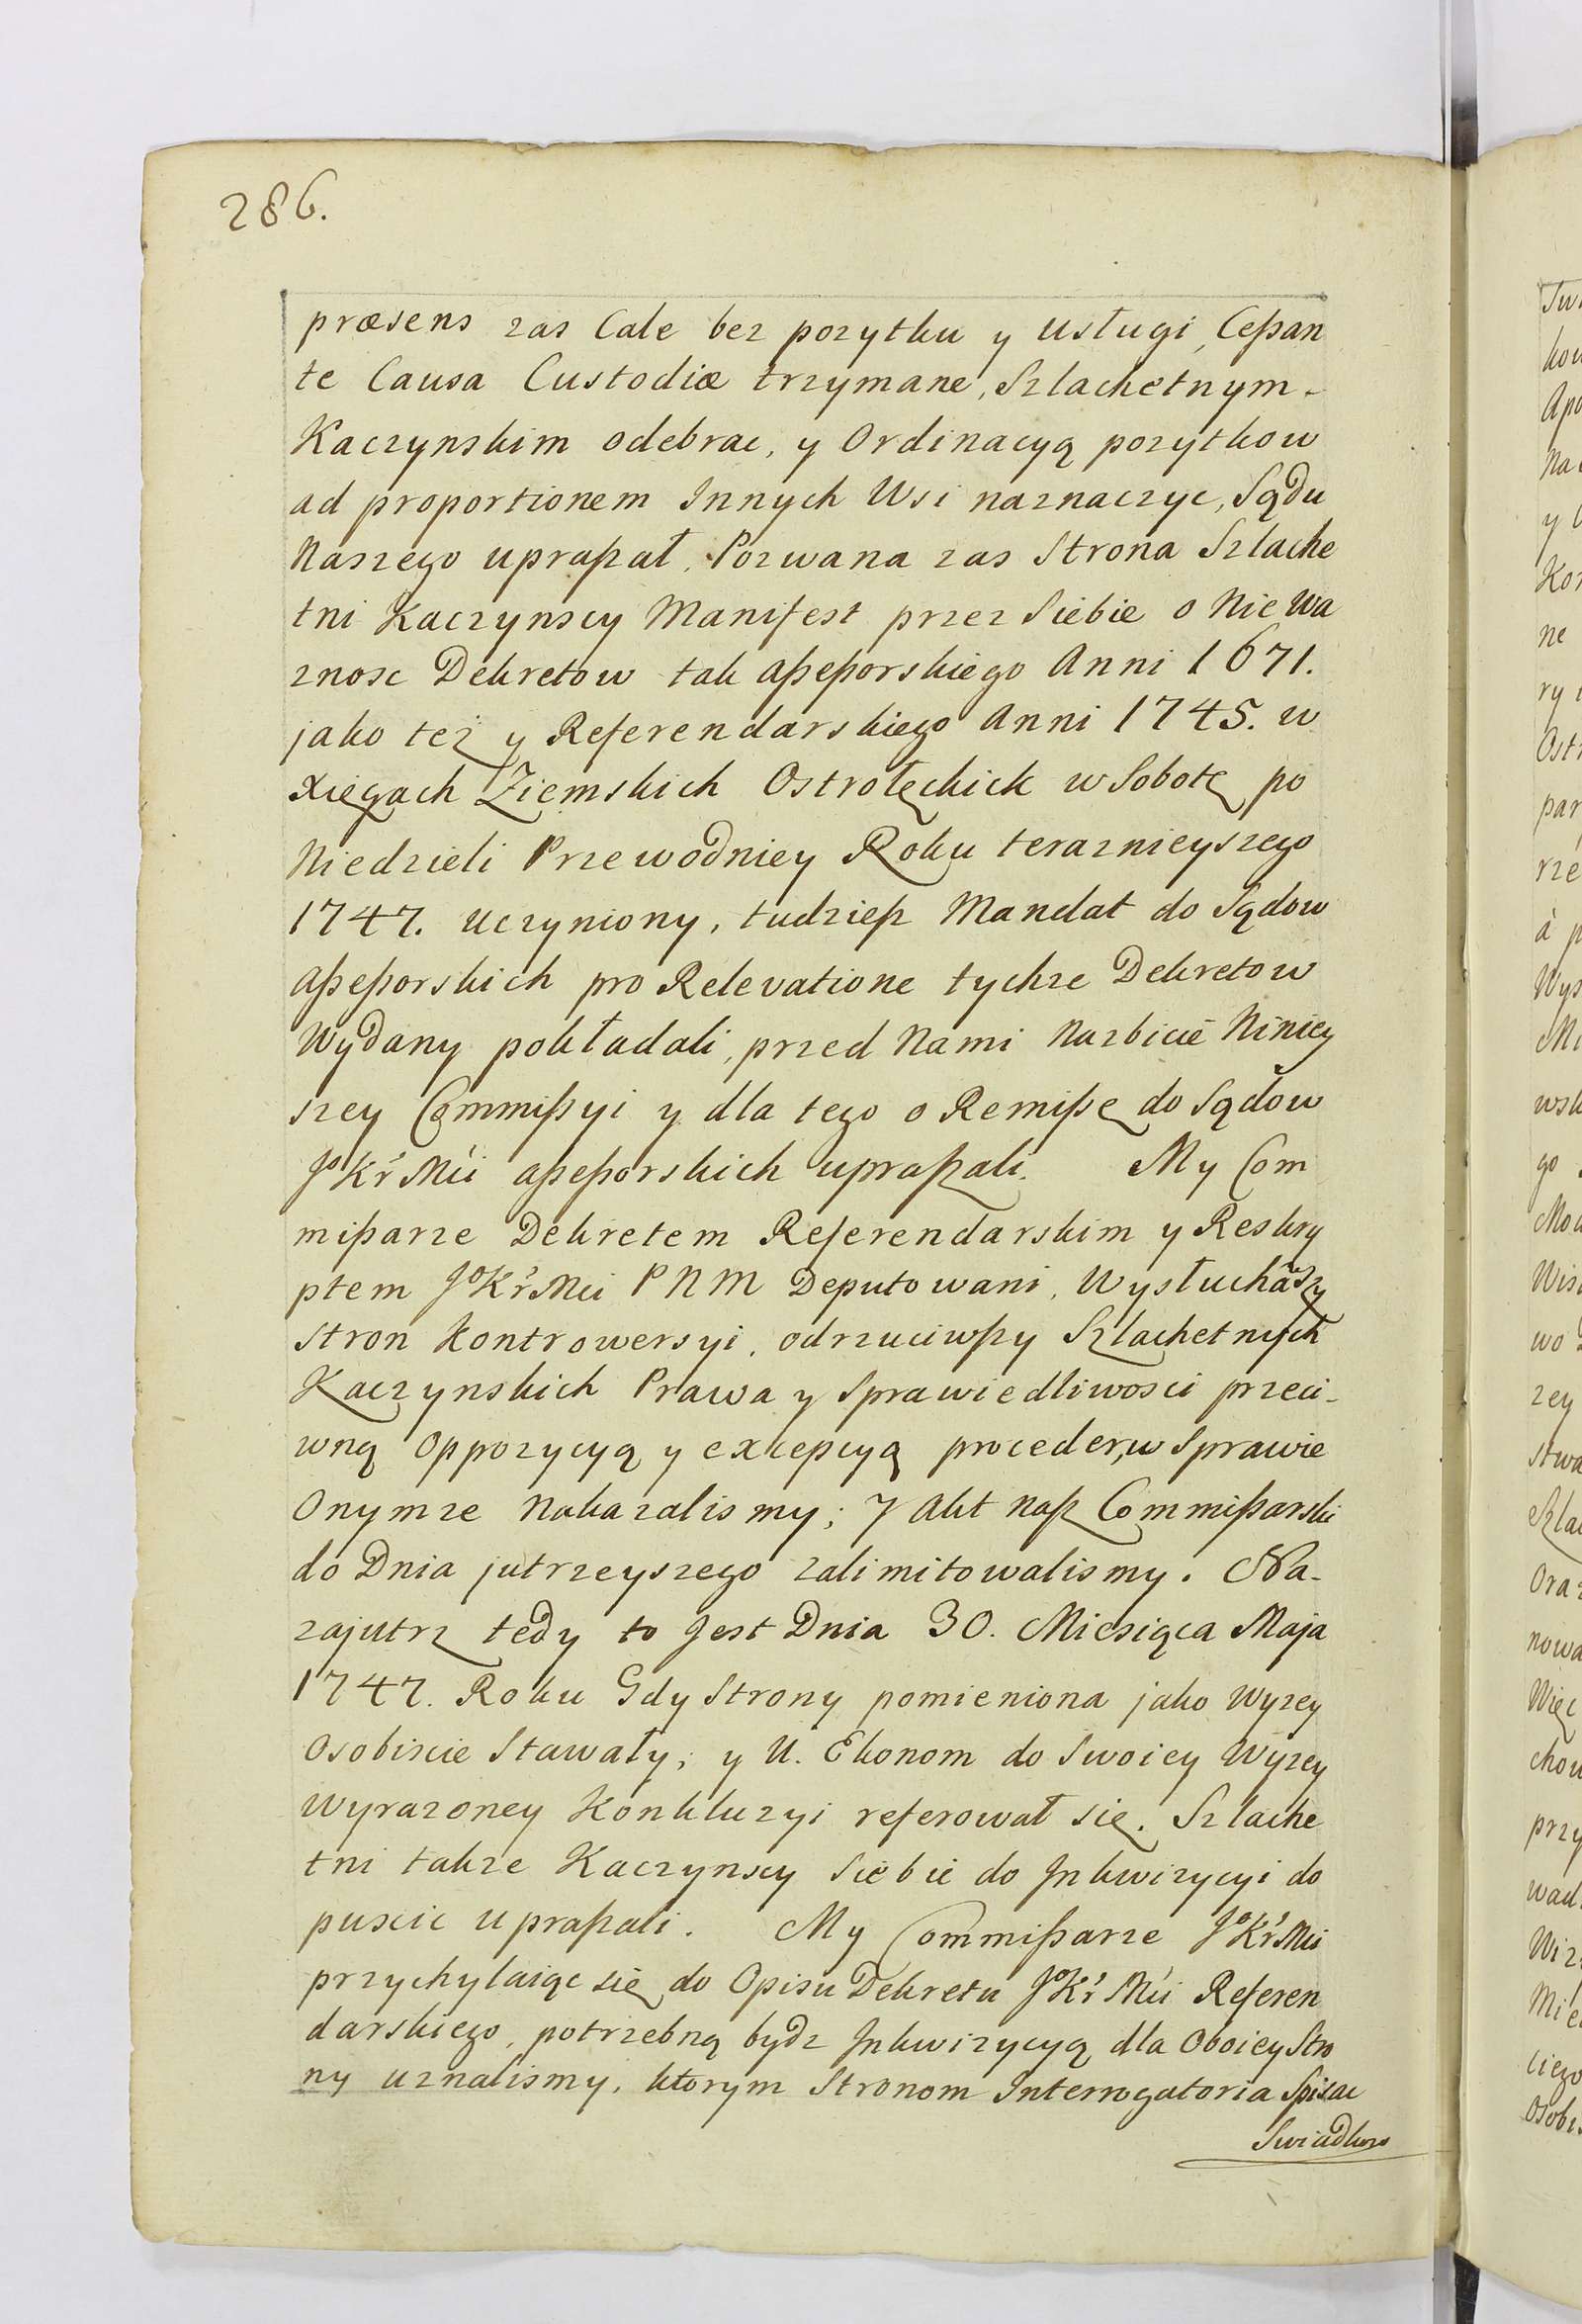 286.
præsens zas Cale bez pozytku y Usługi, Ceßan
te Causa Custodiæ trzymane, Szlachetnym-
Kaczynskim odebrac, y Ordinacyą pozytkow
ad proportionem Innych Wsi naznaczyc, Sądu
Naszego upraßał. Pozwana zas Strona Szlache
tni Kaczynscy Manifest przez Siebie o NieWa
znosc Dekretow tak Aßeßorskiego Anni 1671.
jako też y Referendarskiego Anni 1745. w
Xięgach Ziemskich Ostrołęckick w Sobotę po
Niedzieli Przewodniey Roku teraznieyszego
1747. Uczyniony, tudzieß Mandat do Sądow
Aßeßorskich pro Relevatione tychze Dekretow
Wydany pokładali, przed Nami Nazbicie Niniey
szey Commißyi y dla tego o Remißę do Sądow
JoKr̃Mci aßeßorskich upraßali. My Com
mißarze Dekretem Referendarskim y Reskry
ptem JoKr̃Mci PNM Deputowani, Wysłuchaszy
stron Kontrowersyi, odrzuciwßy Szlachetnych
Kaczynskich Prawa y Sprawiedliwosci przeci-
wną Oppozycyą y excepcyą proceder, w Sprawie
Onymze Nakazalismy; Y Akt Naß Commißarski
do Dnia jutrzeyszego zalimitowalismy. Na-
zajutrz tedy to Jest Dnia 30. Miesiąca Maja
1747. Roku Gdy Strony pomieniona jako Wyzey
Osobiscie Stawały; y U. Ekonom do Swoiey Wyzey
Wyrazoney Konkluzyi referował się. Szlache
tni takze Kaczynscy Siebie do Inkwizycyi do
puscic upraßali. My Commißarze JoKr̃Mci
przychylaiąc się do Opisu Dekretu JoKr̃Mci Referen
darskiego, potrzebną bydz Inkwizycyą dla Oboiey Stro
ny uznalismy, ktorym Stronom Interrogatoria Spisac
Swiadkow